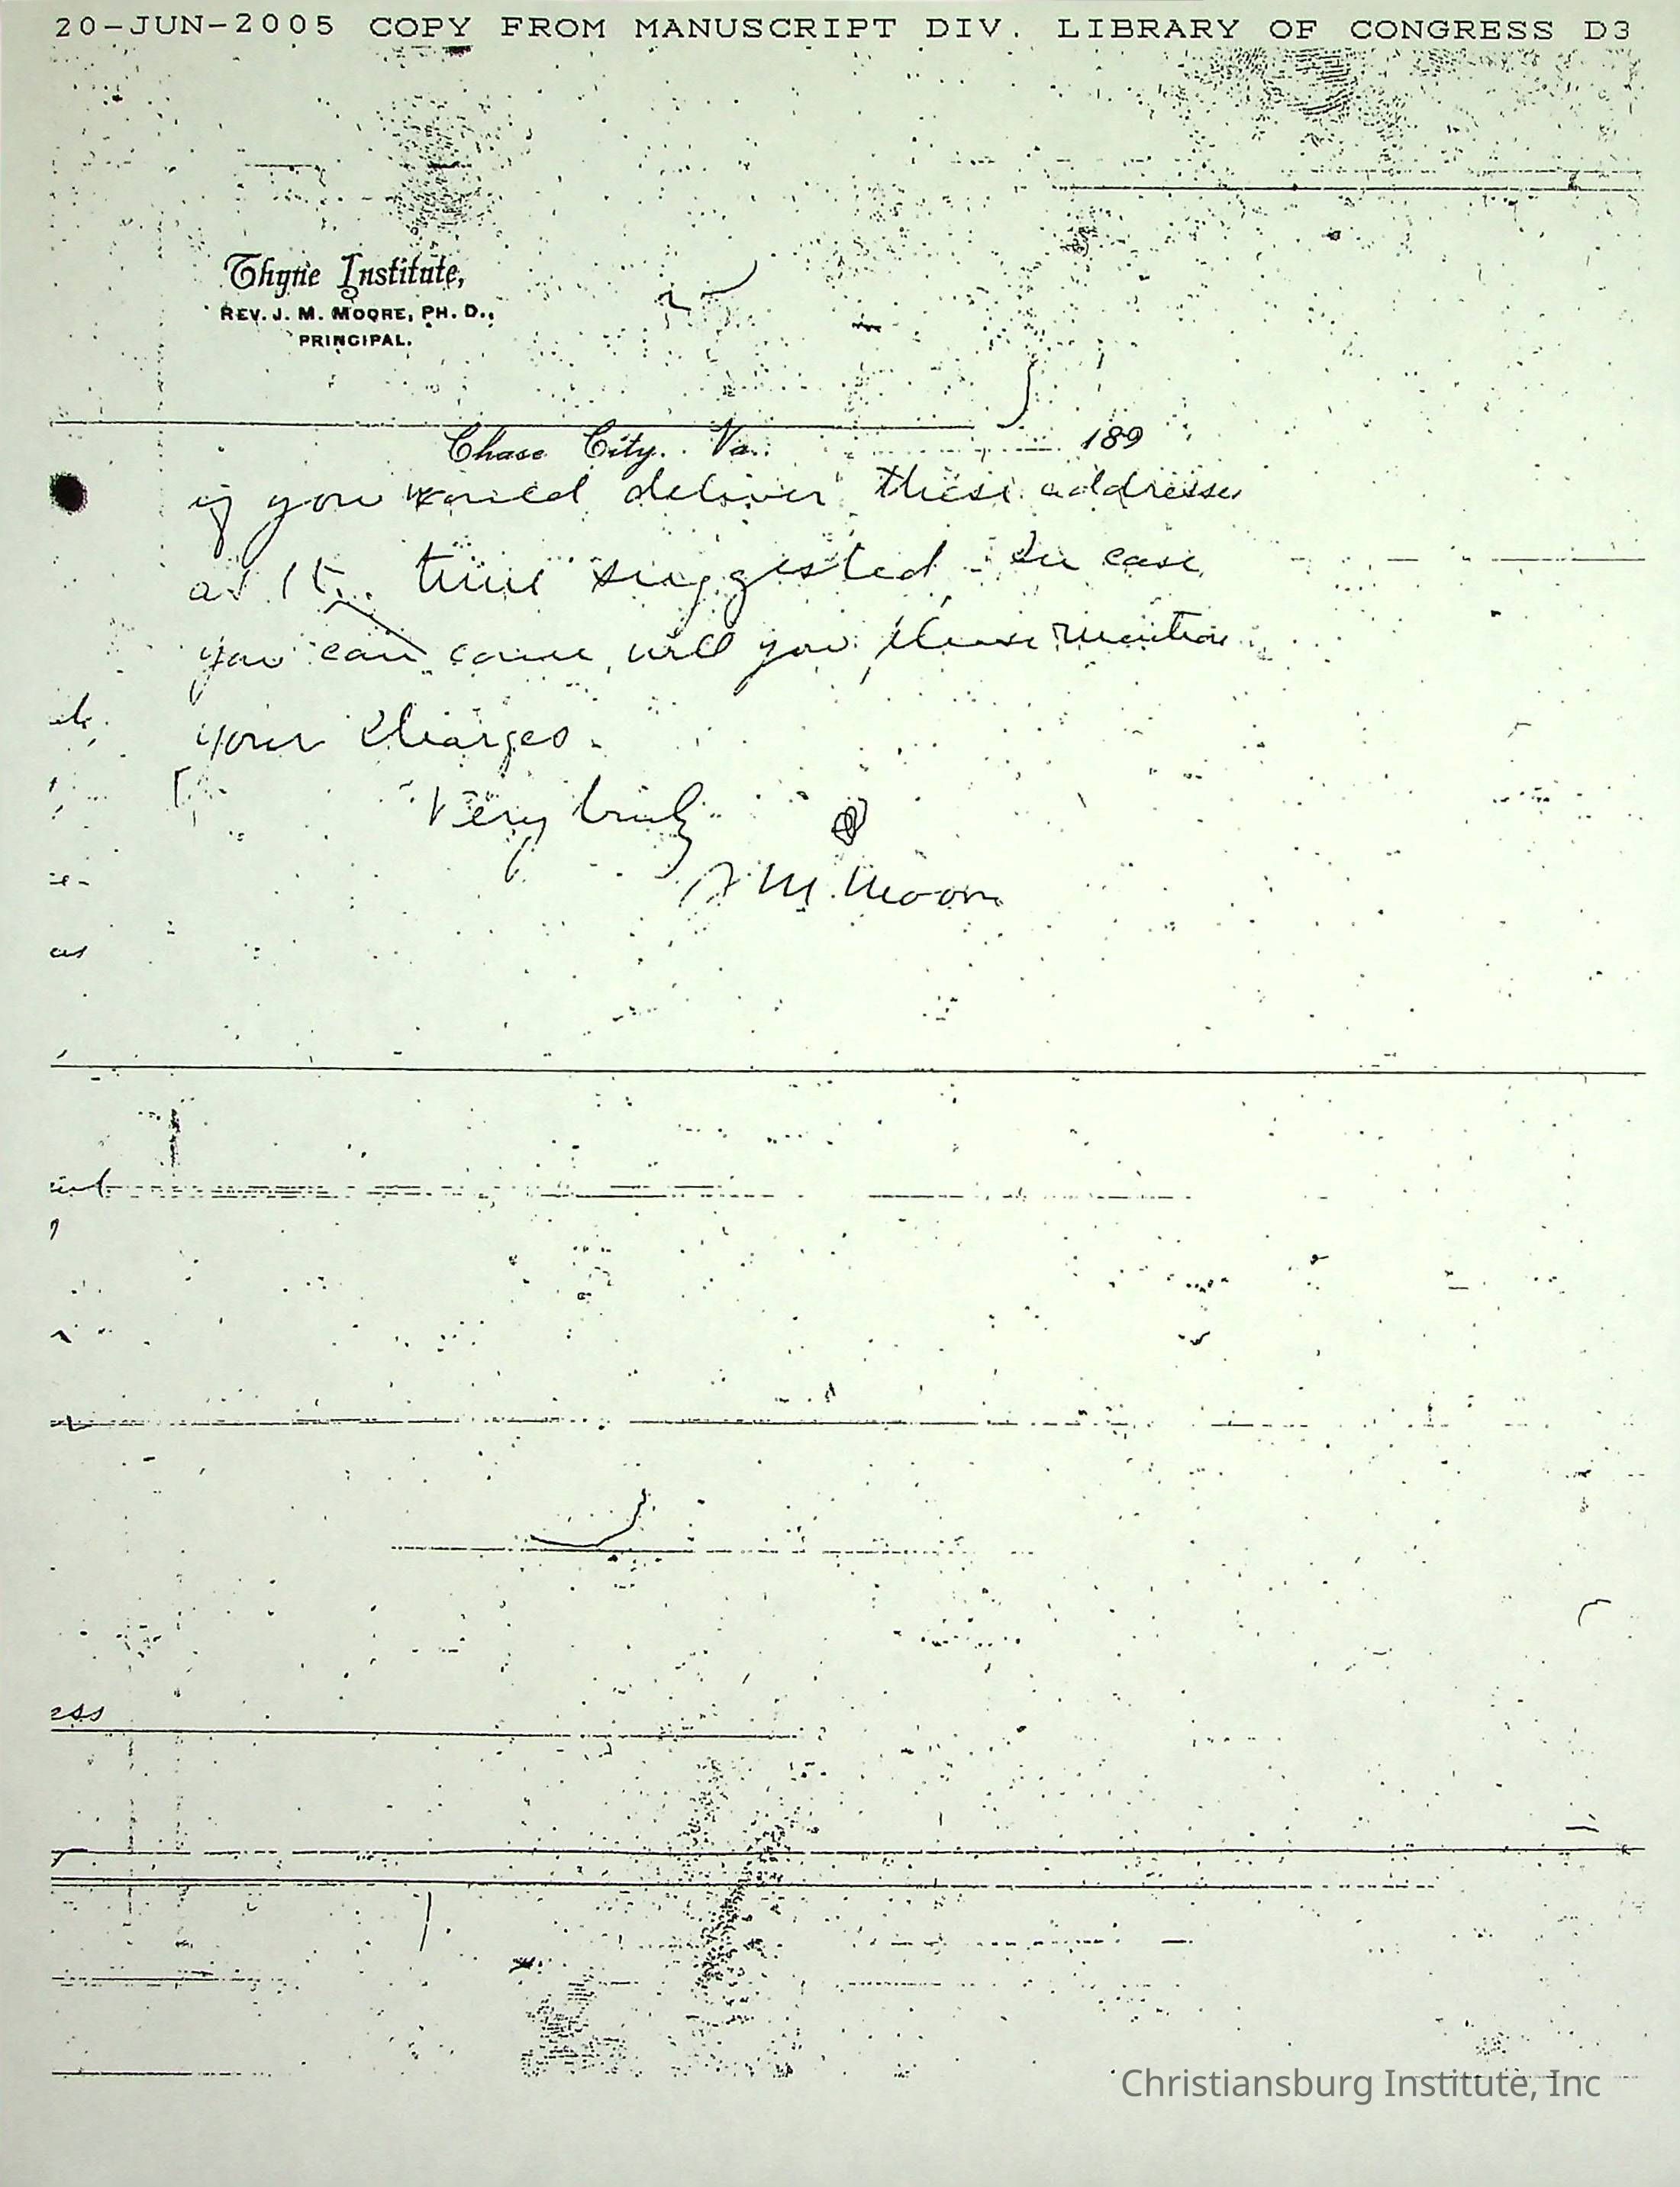 20-JUN-2005 COPY FROM MANUSCRIPT DIV. LIBRARY OF CONGRESS D3
Thyne Institute,
REV. J. M. MOORE, PH. D.,
PRINCIPAL.
Chase City. Va. 189
if you would deliver these addresses
at the time suggested - In case
you can come, will you please mention
your charges.
Very truly
J M. Moore
as
ess
Christiansburg Institute, Inc